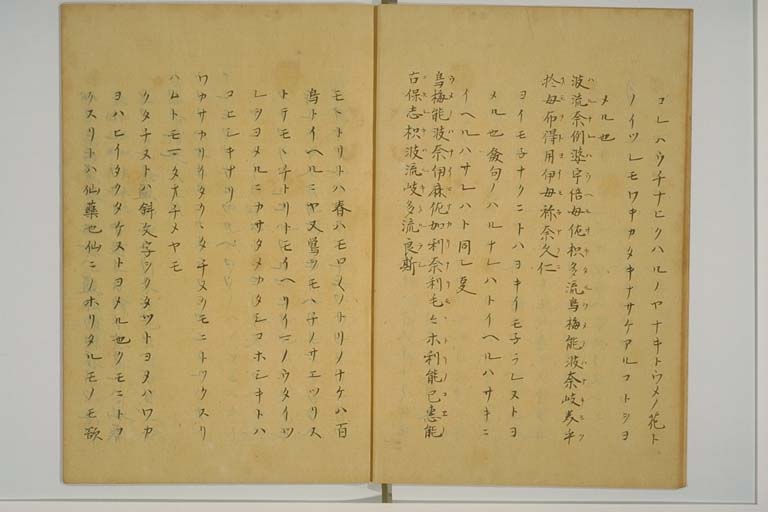 コレハウチナヒクハルノヤナキトウメノ花ト
ノイツレモワキカタキナサケアルコトシヨ
メル也
波流奈例婆宇倍母佐枳多流烏梅能波奈岐美乎
於母布得用伊母祢奈久仁
ヨイモ子ナクニトハヨキイモ子ラレストヨ
メル也發句ノハルナレハトイヘルハサキニ
イヘルハサレハト同レ
烏梅能波奈伊麻佐加利奈利毛々ホ利能己恵能
古保志枳波流岐多流良斯
モヽトリトハ春ハモロ〱ノトリノナケハ百
鳥トイヘルニヤ又鶯ヲモハ子ノサエツリス
トテモヽチトリトモイヘリイ二ノウタイツ
レヲヨメルニカサタメカタシコホシキトハ
コヒシキナリ
ワカサカリイタクヽタチヌクモニトフクスリ
ハムトモマタオチメヤモ
クタチヌトハ斜文字シクタツトヨメハワカ
ヨハヒイタククタケストヨメル也クモニトフ
クスリトハ仙藥也仙ニノホリタルモノモ欲